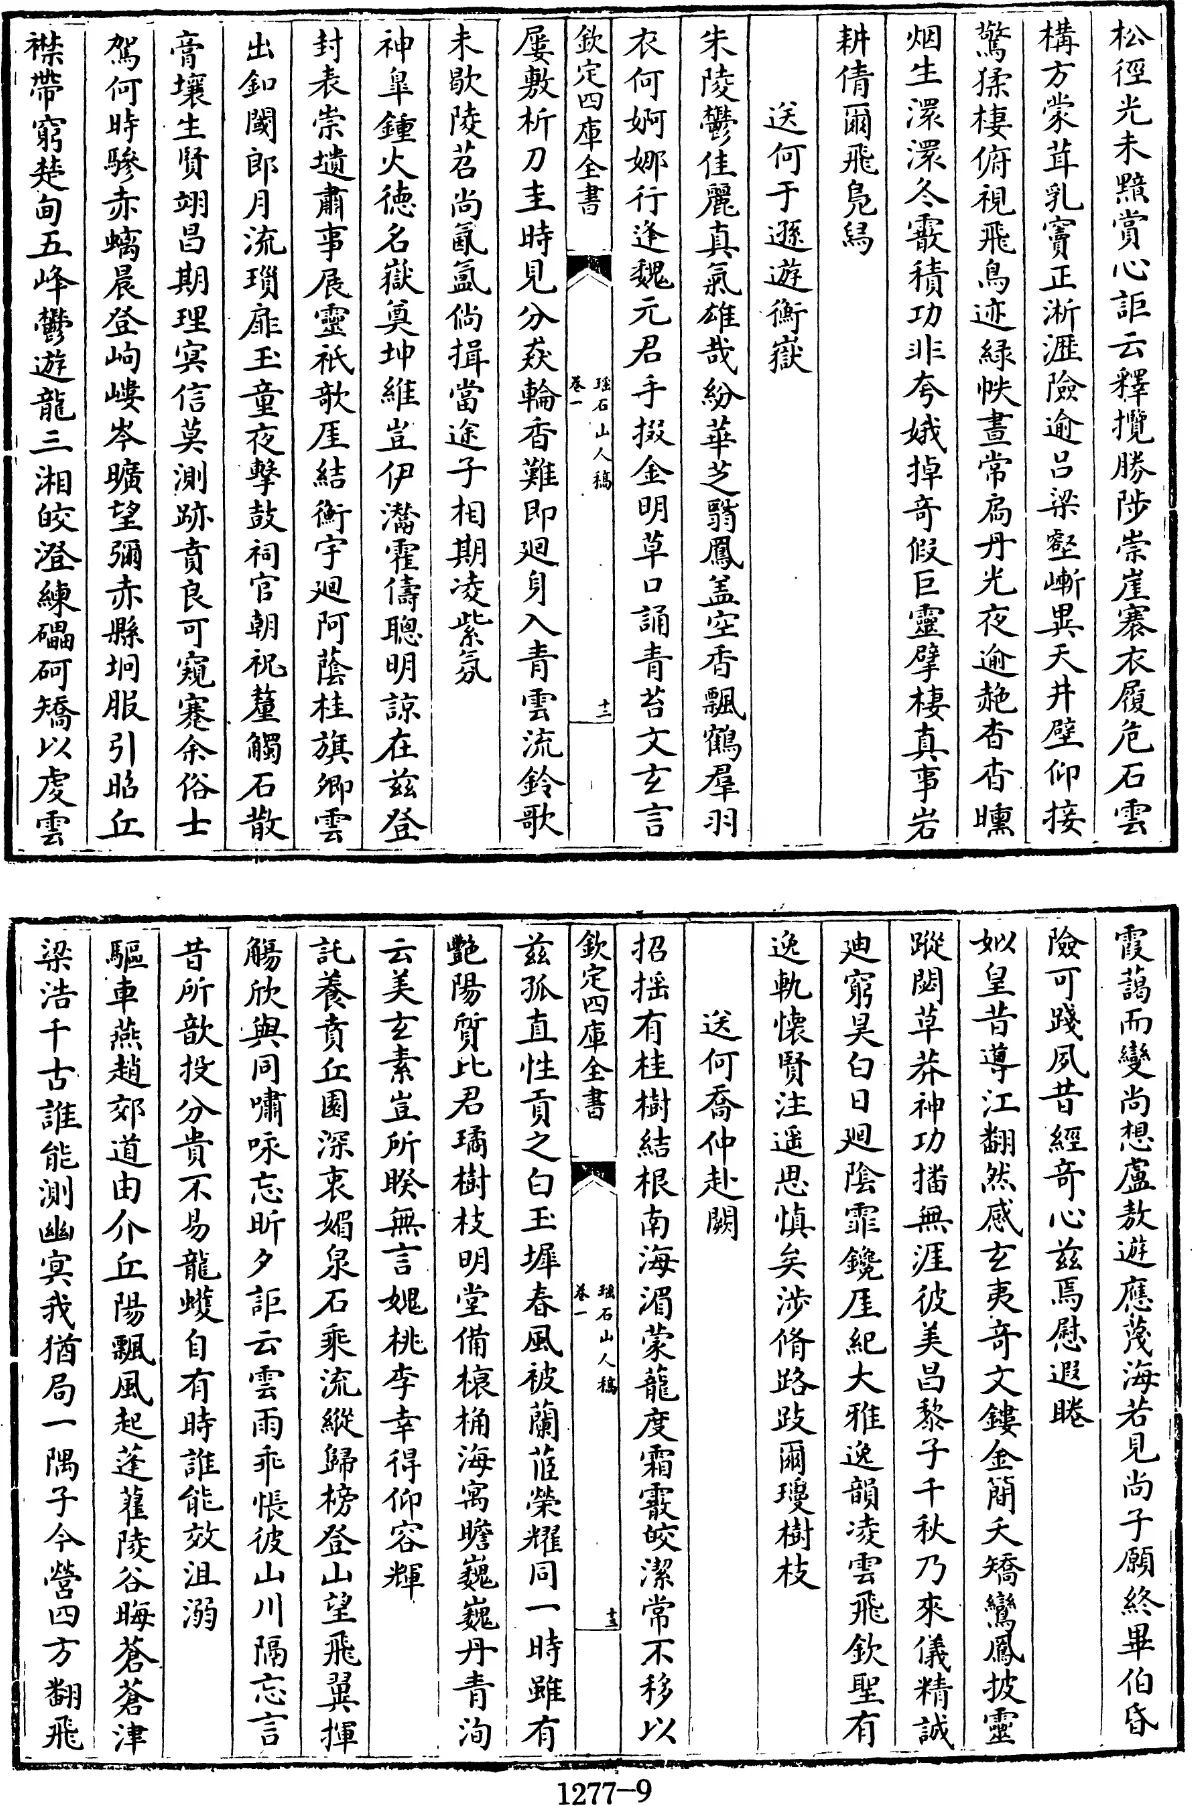 松徑光未黯賞心詎云釋攬勝陟崇崖褰衣履危石雲
構方蒙茸乳竇正淅瀝險逾吕梁壑嶃異天井壁仰接
驚猱棲俯視飛鳥迹緑帙晝常扃丹光夜逾赩杳杳曛
烟生澴澴冬霰積功非夸娥掉奇假巨靈擘棲真事岩
耕倩爾飛凫舄
送何于遜遊衡嶽
朱陵鬱佳麗真氣雄哉紛華芝翳鳳盖空香飄鶴羣羽
衣何婀娜行逢魏元君手掇金明草口誦青苔文玄言
欽定四庫全書
瑶石山人稿
卷一
十二
屢敷析刀圭時見分焱輪香難即廻身入青雲流鈴歌
未歇陵苕尚氤氲倘揖當途子相期凌紫氛
神臯鍾火徳名嶽奠坤維豈伊灊霍儔聰明諒在兹登
封表崇壝肅事展靈祇歌厓結衡宇廻阿蔭桂旗卿雲
出釦闥郎月流瑣扉玉童夜擊鼓祠官朝祝釐觸石散
膏壤生賢翊昌期理㝠信莫測跡賁良可窺蹇余俗士
駕何時驂赤螭晨登岣嶁岑曠望彌赤縣坰服引昭丘
襟帶窮楚甸五峰鬱遊龍三湘皎澄練礧砢矯以䖍雲
霞藹而變尚想盧敖遊應蔑海若見尚子願終畢伯昏
險可踐夙昔經竒心兹焉慰遐睠
姒皇昔導江翻然感玄夷竒文鏤金簡夭矯鸞鳳披靈
蹤閟草莽神功播無涯彼美昌黎子千秋乃來儀精誠
廸窮昊白日廻陰霏鑱厓紀大雅逸韻凌雲飛欽聖有
逸軌懐賢注遥思慎矣涉脩路跂爾瓊樹枝
送何喬仲赴闕
招揺有桂樹結根南海湄蒙蘢度霜霰皎潔常不移以
欽定四庫全書
瑶石山人稿
卷一
十三
兹孤直性貢之白玉墀春風被蘭茝榮耀同一時雖有
艷陽質比君璚樹枝明堂備榱桷海㝢瞻巍巍丹青洵
云美玄素豈所暌無言媿桃李幸得仰容輝
託養賁丘園深衷媚泉石乘流縱歸榜登山望飛翼揮
觴欣與同嘯咏忘昕夕詎云雲雨乖悵彼山川隔忘言
昔所歆投分貴不易龍蠖自有時誰能效沮溺
驅車燕趙郊道由介丘陽飄風起蓬蓷陵谷晦蒼蒼津
梁浩千古誰能測幽冥我猶局一隅子今營四方翻飛
1277-9